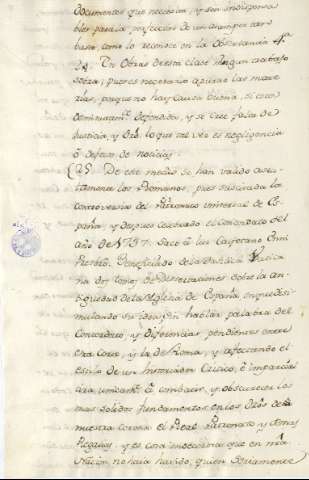 documentos que necesita, y son indispensa
bles para la perfeccion de un
como lo reconoce en la observancia 4ª
24. En Obras de esta clase ningun trabajo
sobra; pues es necesario apurar las mate
rias, porque no hay causa buena, si esta
defendida, y se cree falta de
Justicia, y Dro. lo que tal vez es negligencia
ó defecto de noticias.
25 De este medio se han valido astu
tamente los Romanos, pues suscitada la
controversia del Patronato universal de Es
paña, y despues celebrado el Concordato del
año de 1737. sacó á luz Cayetano Cenni
Presbito. Beneficiado de la Basilica Vatica
na dos tomos de Disertaciones sobre la an
tiguedad de la Iglesia de España, en que disi
mulando su idea, sin hablar palabra del
Concordato, y diferencias pendientes entre
esta Corte, y la de Roma, y afectando el
estilo de un Historiador Critico, é imparcial
tira unicamte. á combatir, y obscurecer los
mas solidos fundamentos en los Dros. de
nuestra corona el Real Patronato, y otras
Regalias, y es cosa que en nra.
Nacion no haia havido, quien seriamente